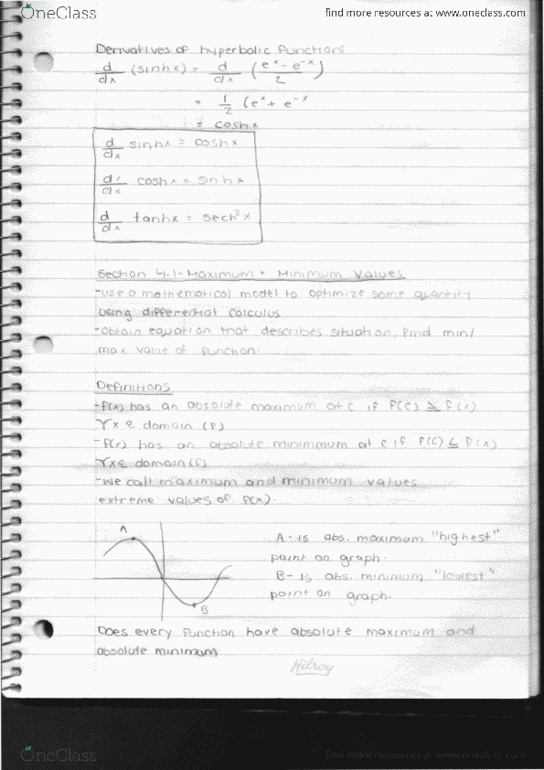 OneClass
find more resources at www.oneclass.com
Derivatives of hyperbolic functions
d/dx (sinhx) = d/dx (e^x - e^-x / 2)
= 1/2 (e^x + e^-x
= coshx
d/dx sinhx = coshx
d/dx coshx = sinhx
d/dx tanhx = sech²x
Section 4.1 - Maximum + Minimum Values
-use a mathematical model to optimize some quantity
using differential calculus
-obtain equation that describes situation, find min/
max value of function.
Definitions
-f(x) has an absolute maximum at c if f(c) ≥ f(x)
∀x ε domain (f)
-f(x) has an absolute minimmum at c if f(c) ≤ f(x)
∀x ε domain (f)
-we call maximum and minimum values
extreme values of f(x).
A
B
A - is abs. maximum "highest"
point on graph.
B - is abs. minimum "lowest"
point on graph.
Does every function have absolute maximum and
absolute minimum
Hilroy
OneClass
find more resources at www.oneclass.com